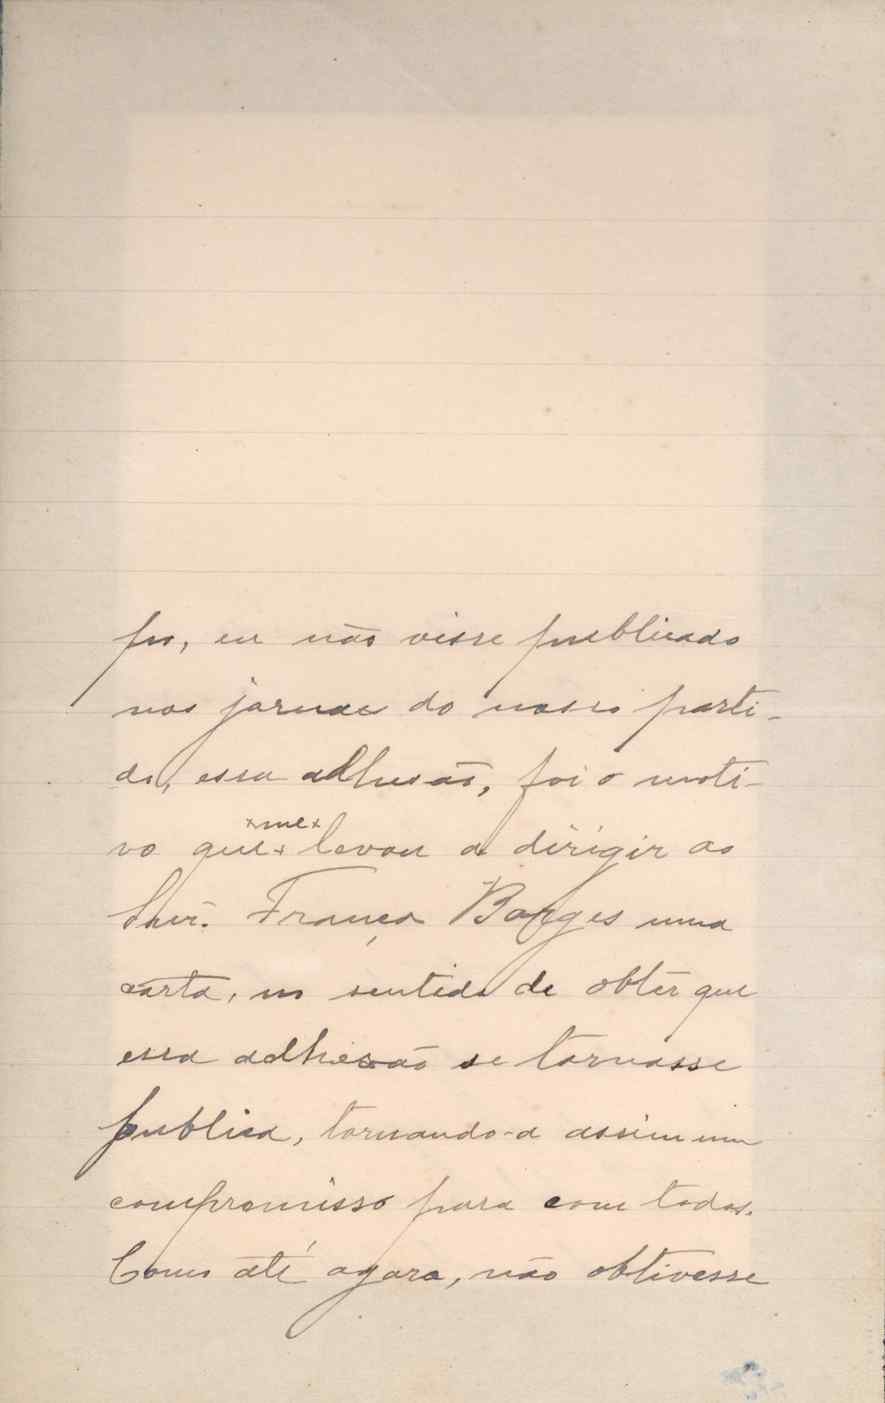 po, eu não visse publicado
nos jornaes do nosso parti-
do, essa adhesão, foi o moti-
vo que ×me× levou a dirigir ao
Snr. França Borges uma
carta, no sentido de obter que
essa adhesão se tornasse
publica, tornando-a assim um
compromisso para com todos.
Como até agora, não obtivesse